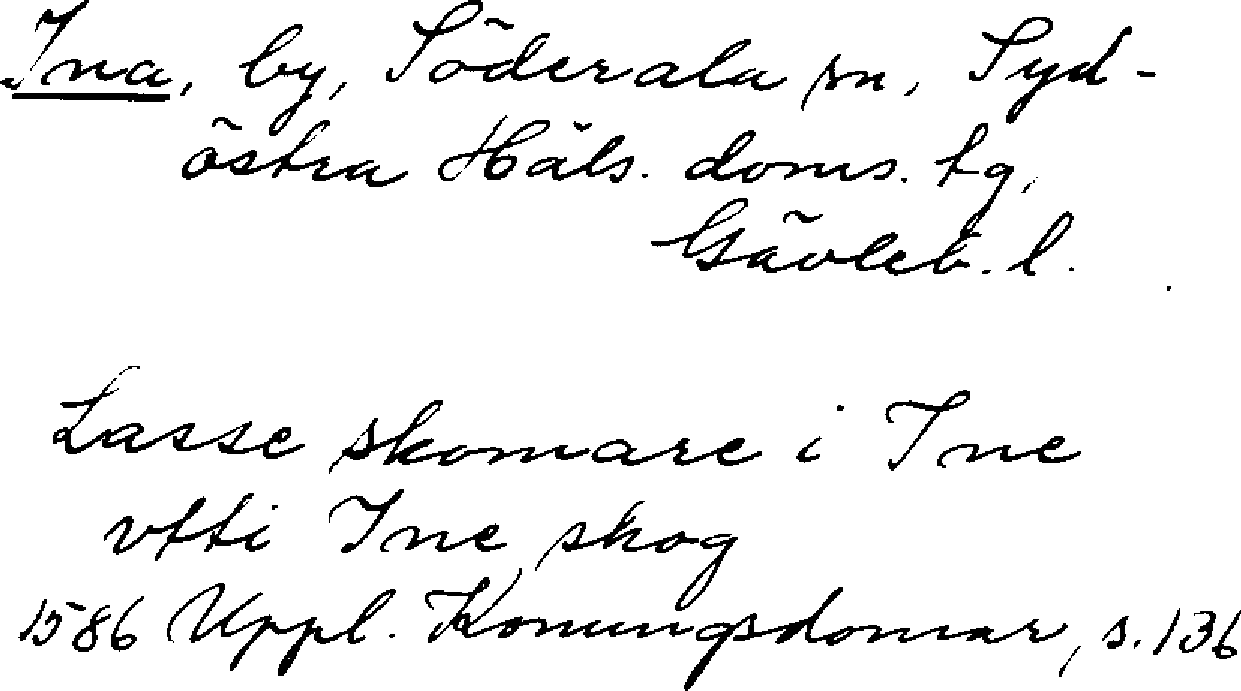 Ina, by, Söderala sn, Syd-
östra Häls. doms. tg,
Gävleb. l.
Lasse skomare i Ine
vtti Ine skog
1586 Uppl. Konungsdomar, s. 136